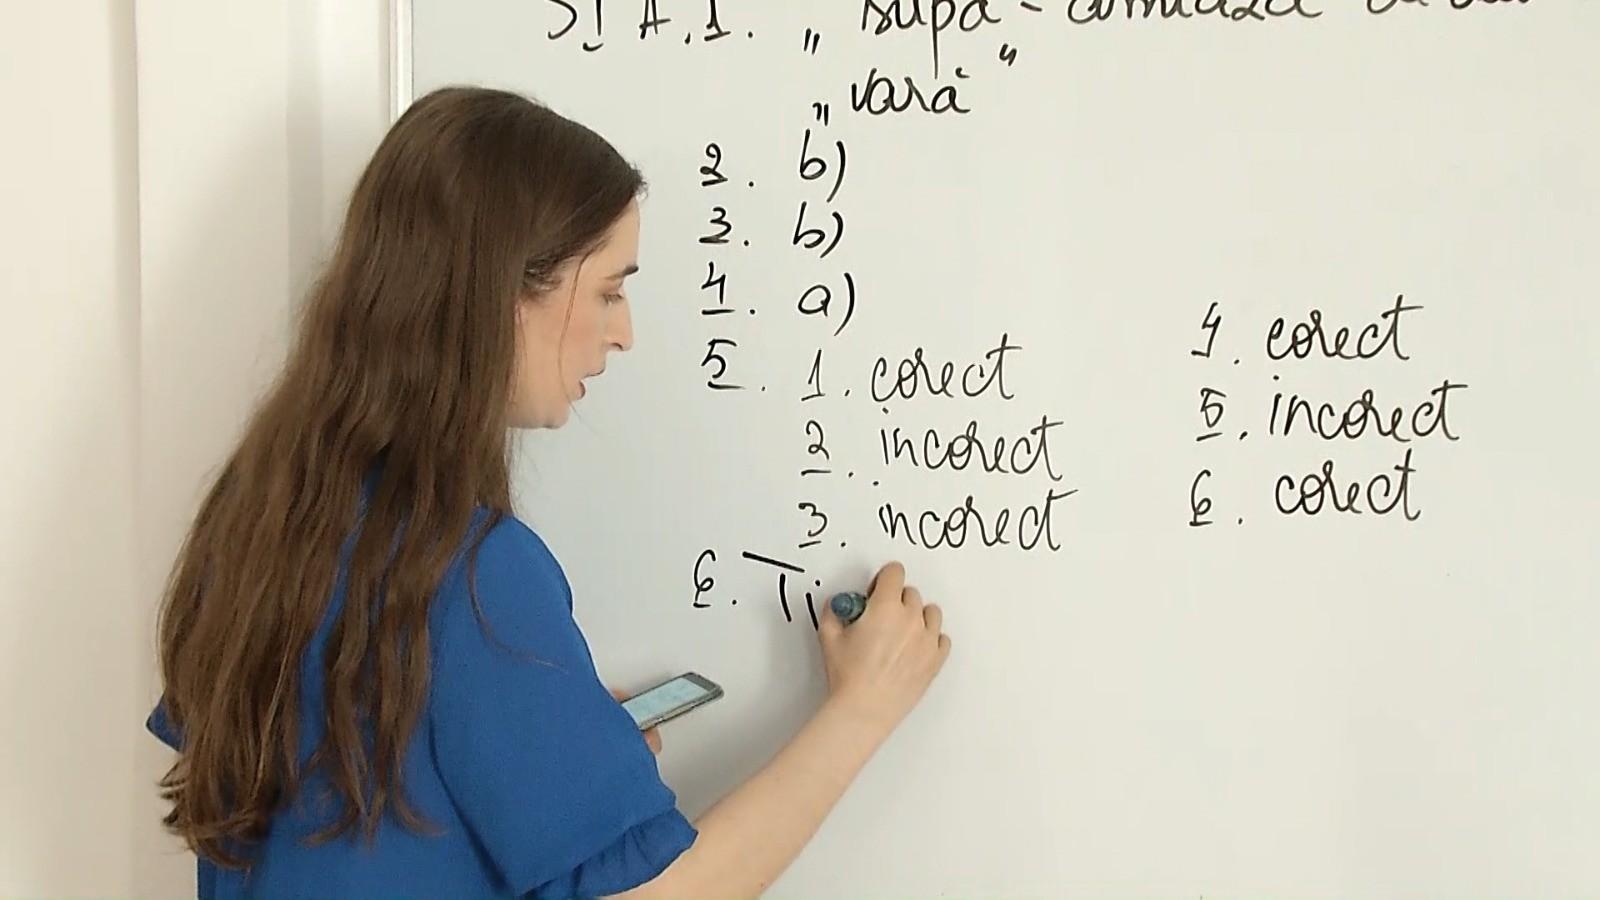 SI A.1. „ supa - amiază
„ vară"
2. b)
3. b)
4. a)
5. 1. corect
2. incorect
3. incorect
4. corect
5. incorect
6. corect
6. Ti